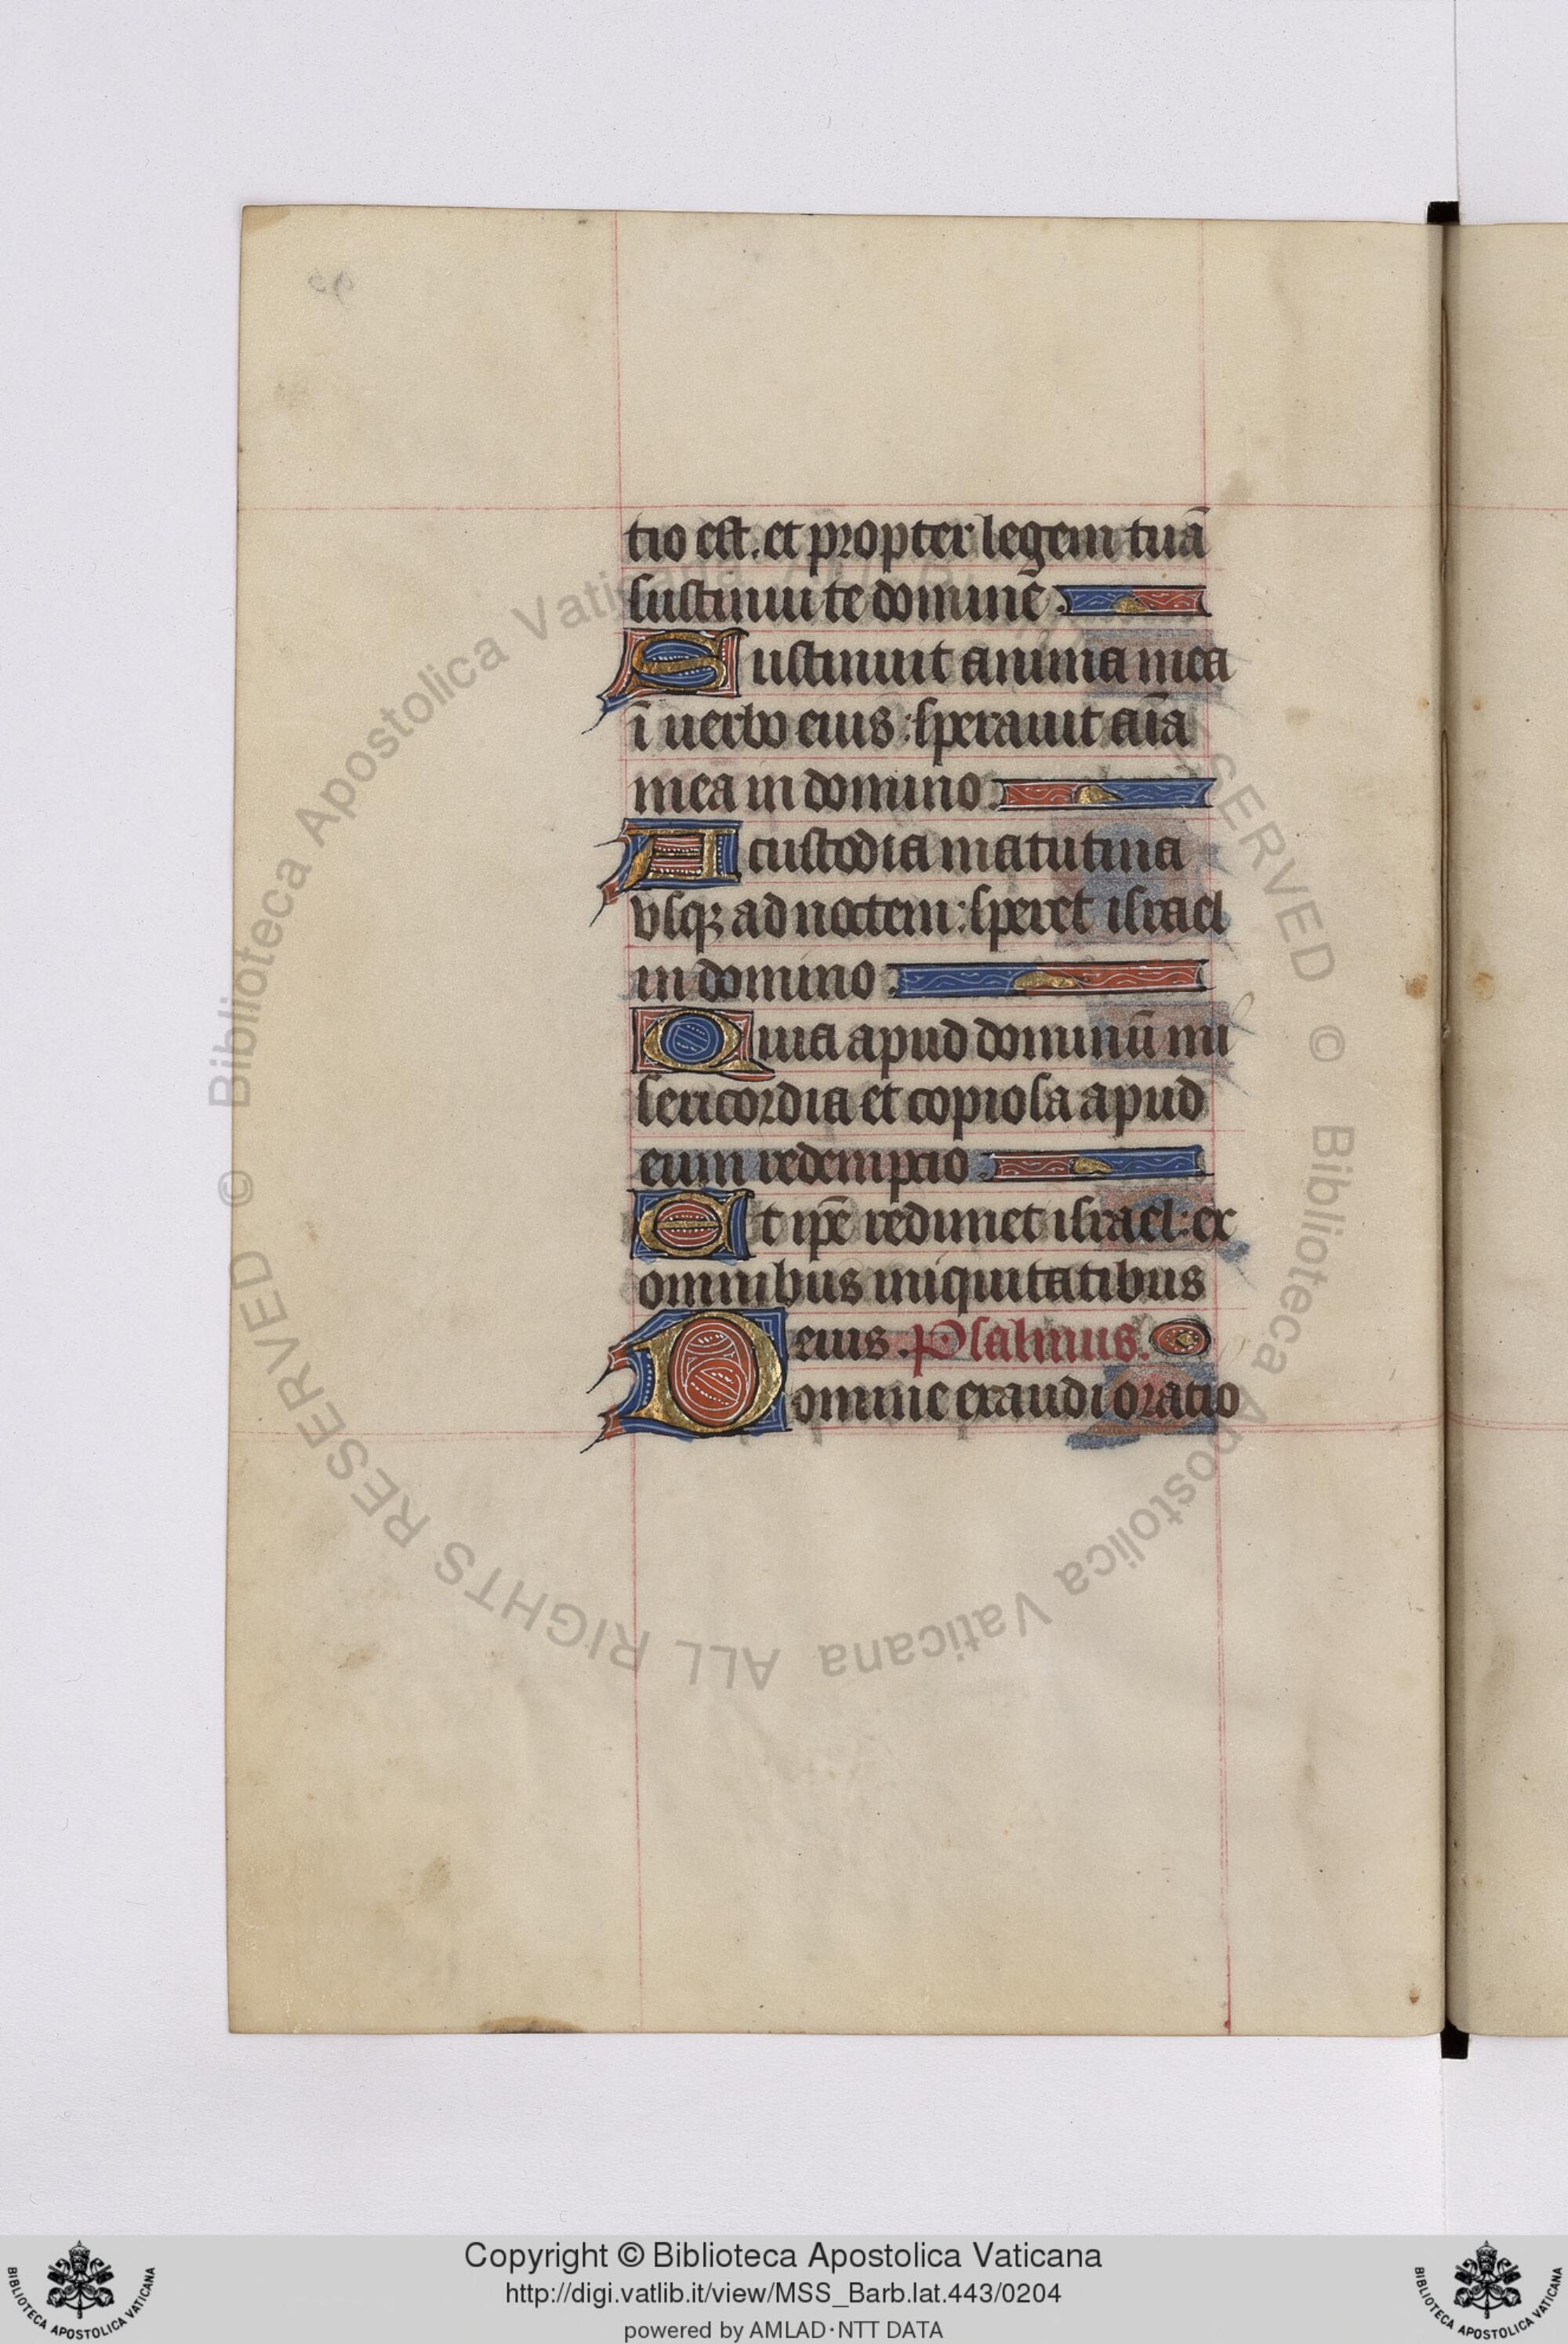 tio est. et propter legem tuā
sustinui te domine.
Sustinuit anima mea
ī uerbo eius: sperauit aīa
mea in domino.
A custodia matutina
vsqꝫ ad noctem: speret israel
in domino.
Quia apud dominū mi
sericordia et copiosa apud
eum redemptio.
Et ip̄e redimet israel: ex
omnibus iniquitatibus
eius. Psalmus.
Domine exaudi oratio
© Biblioteca Apostolica Vaticana ALL RIGHTS RESERVED © Biblioteca Apostolica Vaticana ALL RIGHTS RESERVED
Copyright © Biblioteca Apostolica Vaticana
http://digi.vatlib.it/view/MSS_Barb.lat.443/0204
powered by AMLAD·NTT DATA
BIBLIOTECA APOSTOLICA VATICANA
BIBLIOTECA APOSTOLICA VATICANA